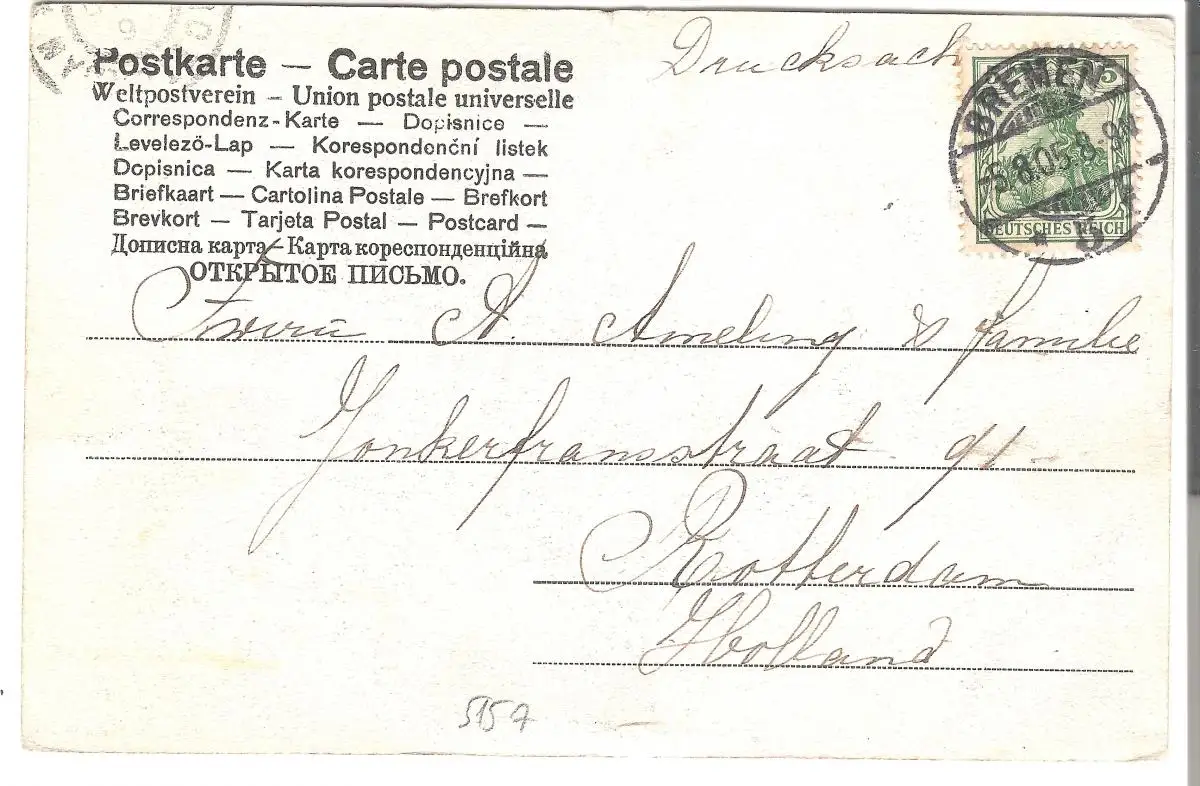 Drucksach
Postkarte — Carte postale
Weltpostverein – Union postale universelle
Correspondenz-Karte — Dopisnice —
Levelező-Lap — Korespondenční listek
Dopisnica — Karta korespondencyjna —
Briefkaart — Cartolina Postale — Brefkort
Brevkort — Tarjeta Postal — Postcard —
Дописна карта – Карта кореспонденційна
ОТКРЫТОЕ ПИСЬМО.
BREMEN
5
5.8.05.8-9
DEUTSCHES REICH
A. Ameling & familie
Jonkerfransstraat 91
Rotterdam
Holland
5157